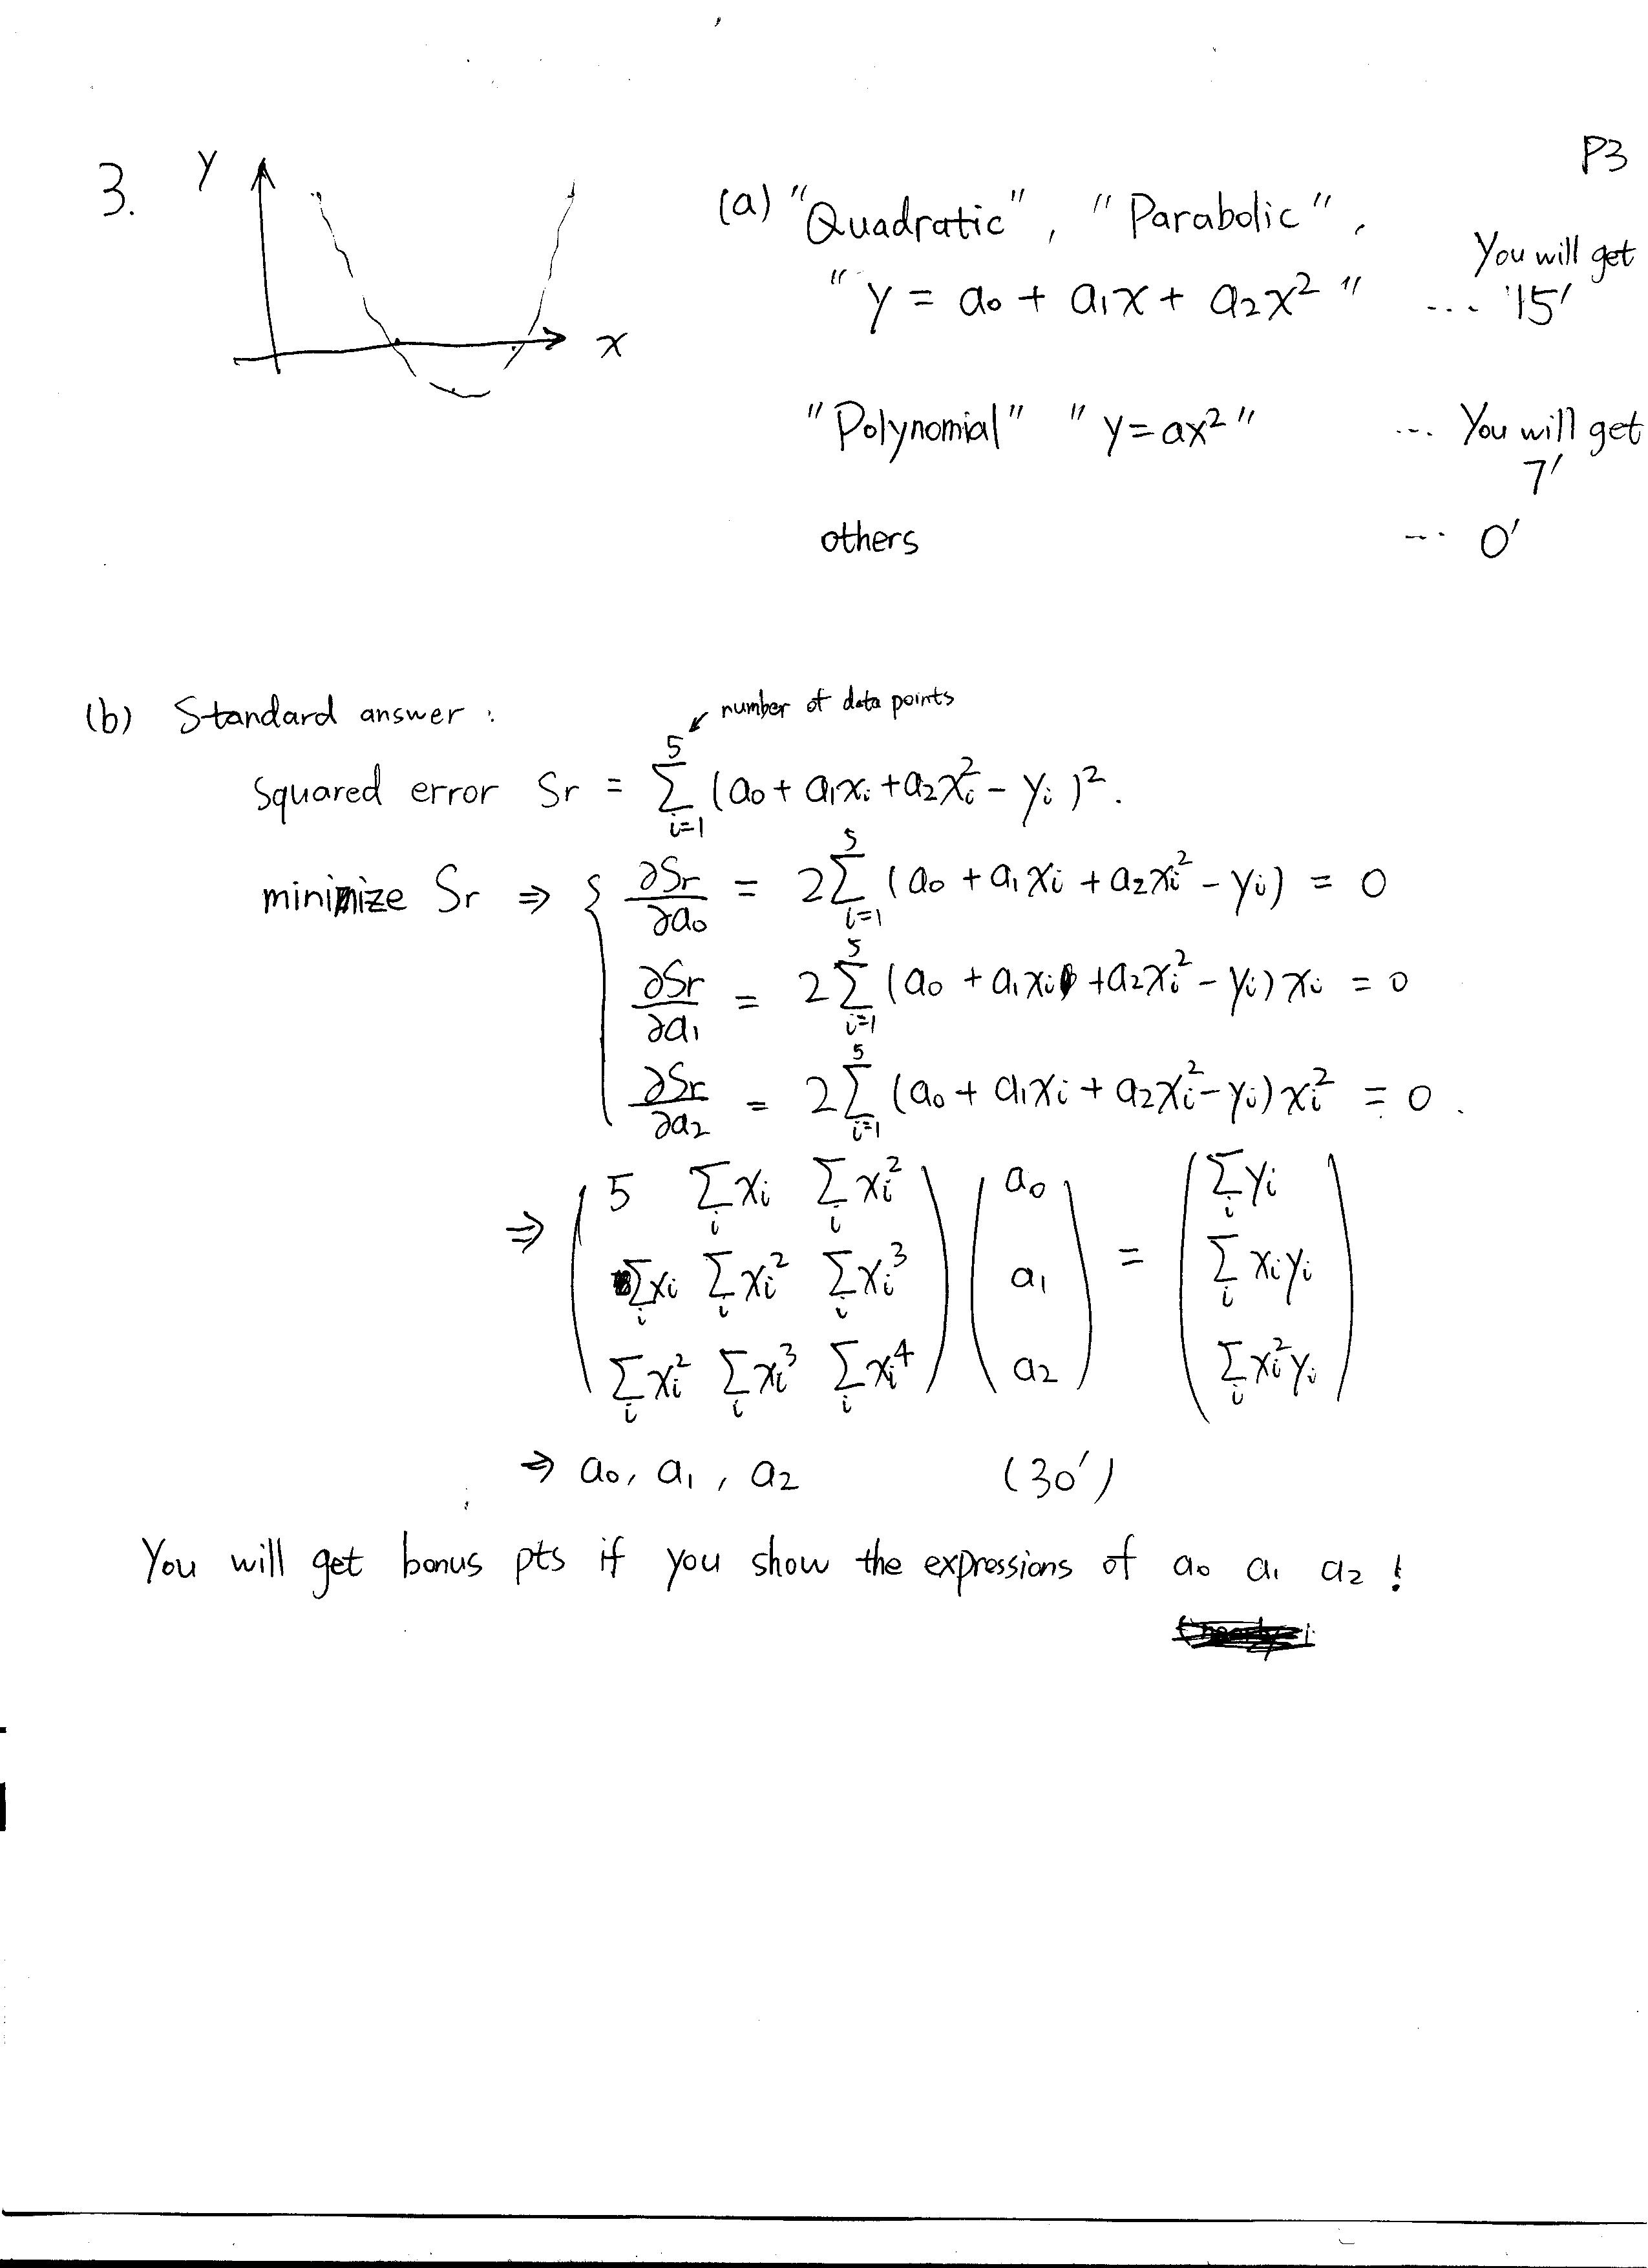 P3
3.
y
x
(a) "Quadratic", "Parabolic",
"y = a₀ + a₁x + a₂x²" ... You will get 15'
"Polynomial" "y=ax²" ... You will get 7'
others ... 0'
(b) Standard answer :
number of data points
Squared error Sr = ∑_{i=1}^{5} (a₀ + a₁xᵢ + a₂xᵢ² - yᵢ)².
minimize Sr ⇒ { ∂Sr/∂a₀ = 2∑_{i=1}^{5} (a₀ + a₁xᵢ + a₂xᵢ² - yᵢ) = 0
∂Sr/∂a₁ = 2∑_{i=1}^{5} (a₀ + a₁xᵢ + a₂xᵢ² - yᵢ) xᵢ = 0
∂Sr/∂a₂ = 2∑_{i=1}^{5} (a₀ + a₁xᵢ + a₂xᵢ² - yᵢ) xᵢ² = 0.
⇒ ( 5 ∑ᵢxᵢ ∑ᵢxᵢ² ) ( a₀ ) = ( ∑ᵢyᵢ )
( ∑ᵢxᵢ ∑ᵢxᵢ² ∑ᵢxᵢ³ ) ( a₁ ) ( ∑ᵢxᵢyᵢ )
( ∑ᵢxᵢ² ∑ᵢxᵢ³ ∑ᵢxᵢ⁴ ) ( a₂ ) ( ∑ᵢxᵢ²yᵢ )
⇒ a₀, a₁, a₂ (30')
You will get bonus pts if you show the expressions of a₀ a₁ a₂ !